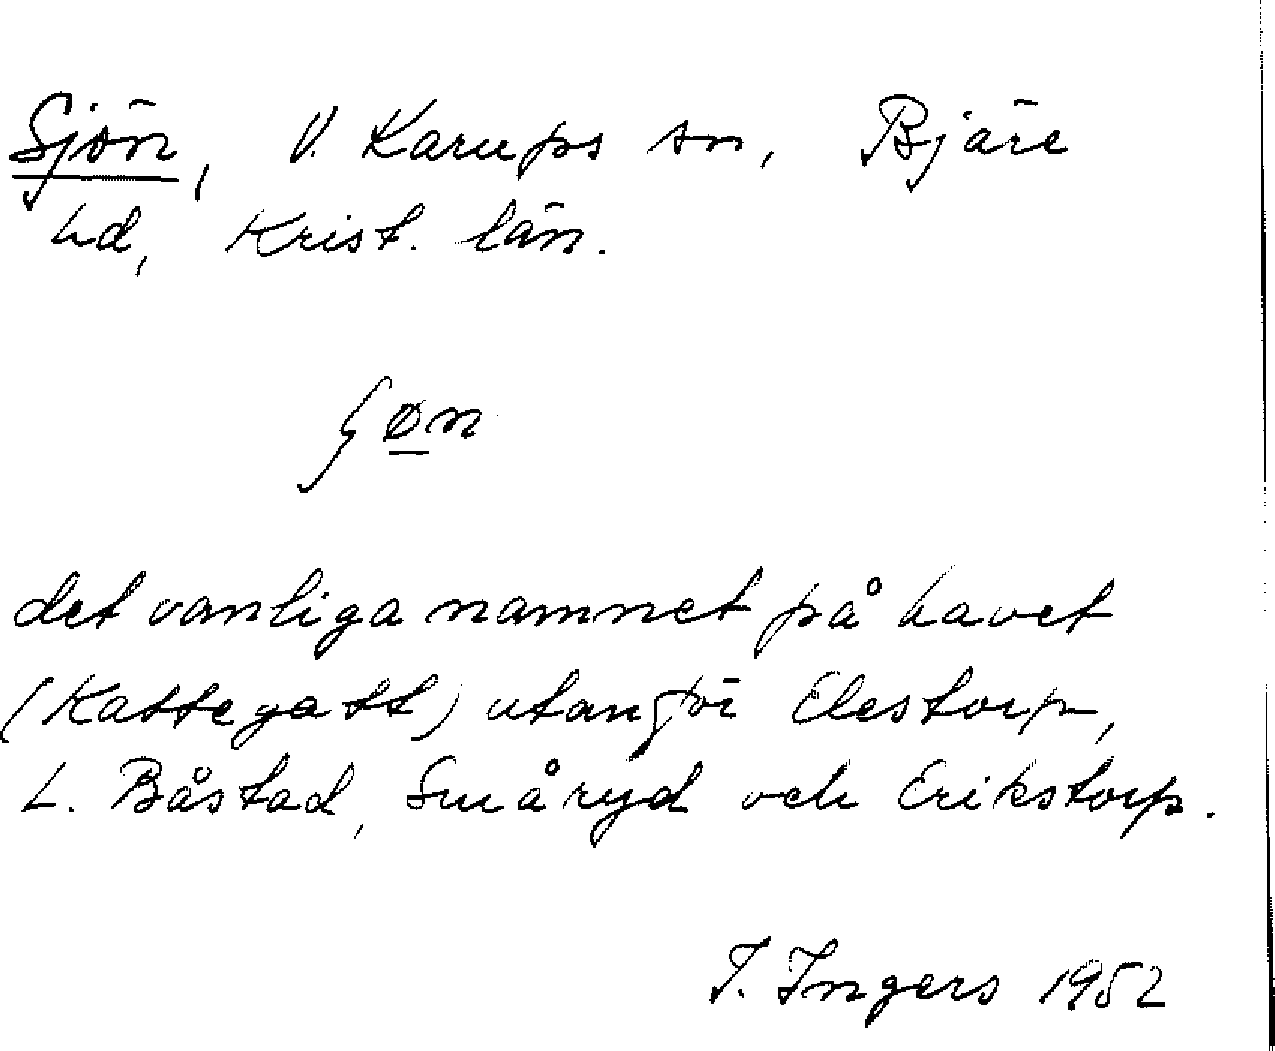 Sjön, V. Karups sn, Bjäre
hd, Krist. län.
ʃø̲n
det vanliga namnet på havet
(Kattegatt) utanför Elestorp,
L. Båstad, Småryd och Erikstorp.
I. Ingers 1952